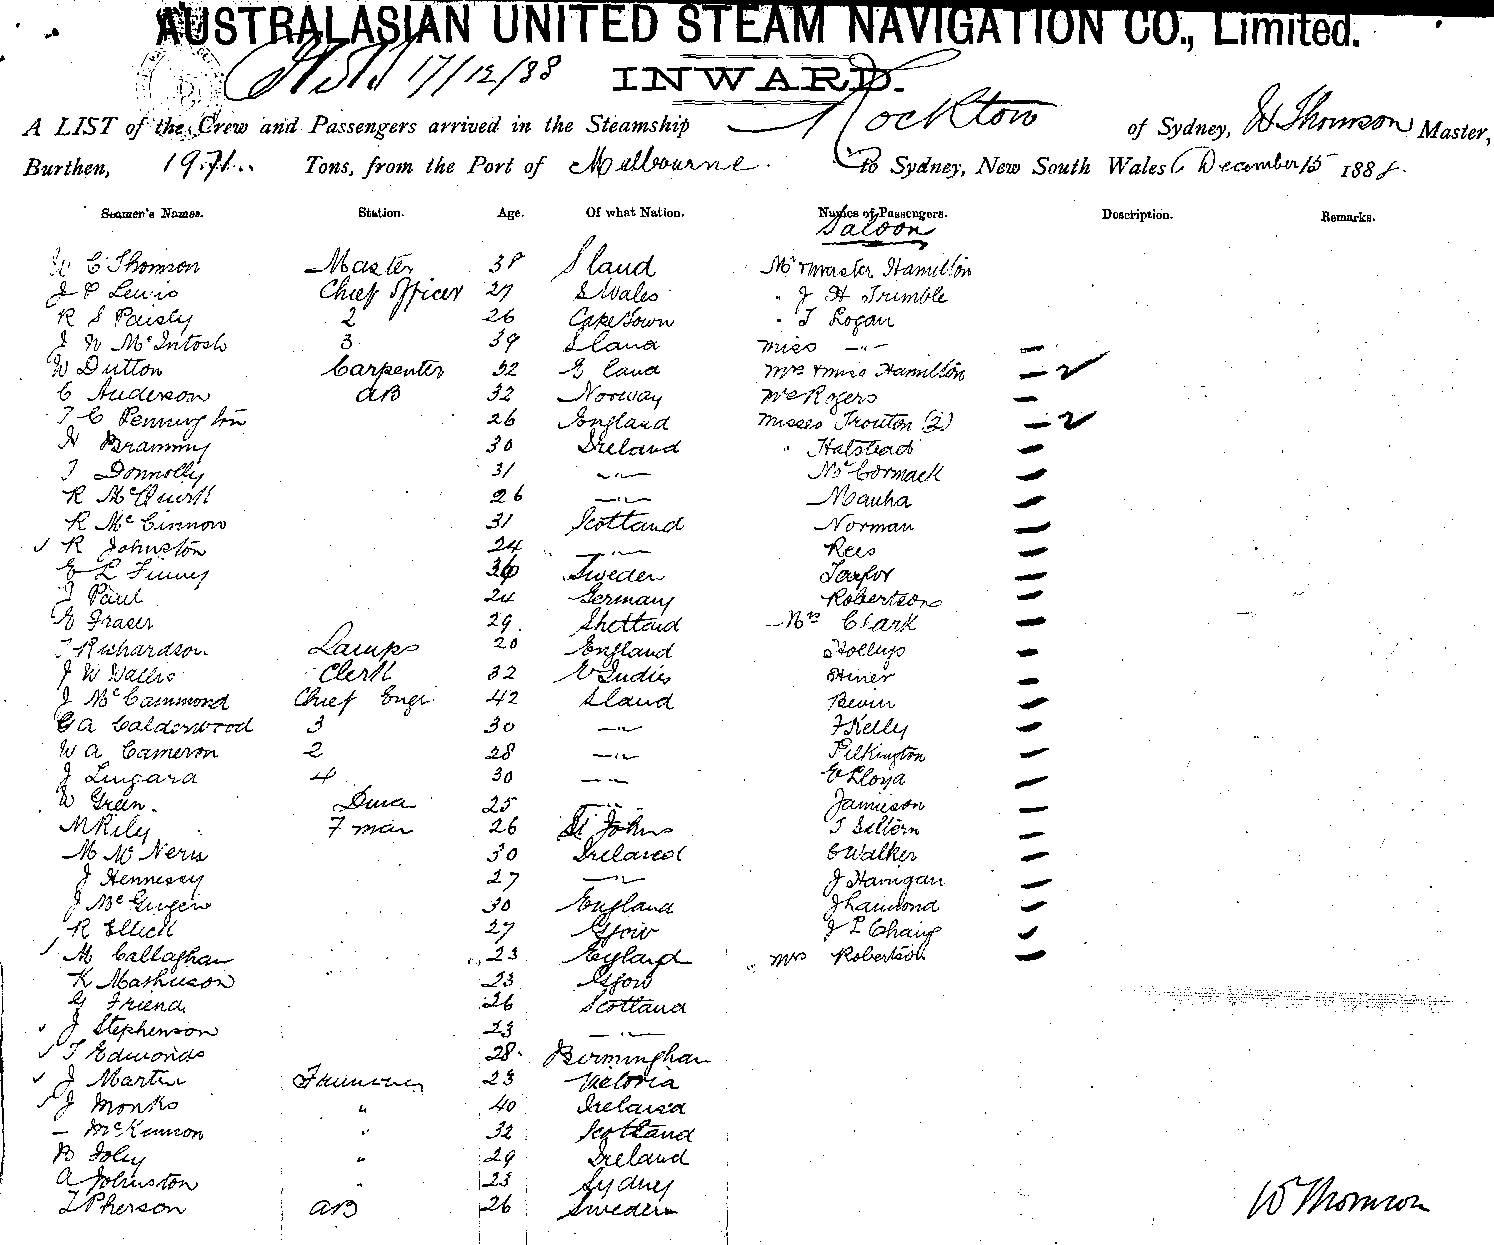 AUSTRALASIAN UNITED STEAM NAVIGATION CO., Limited.
17/12/88 INWARD.
A LIST of the Crew and Passengers arrived in the Steamship Rockton of Sydney, W Thomson Master,
Burthen, 1971 Tons, from the Port of Melbourne to Sydney, New South Wales December 15 1888.
Seamer's Names. Station. Age. Of what Nation. Names of Passengers. Description. Remarks.
Saloon
W C Thomson Master 38 Sland Mr & master Hamilton
J P Lewis Chief Officer 27 S Wales " J H Trimble
R S Paisly 2 26 Cape Town " T Logan
J W McIntosh 3 39 Sland Miss —"—
W Dutton Carpenter 32 E land Mrs & miss Hamilton 2
C Anderson AB 32 Norway Mc Rogers
T C Pennington 26 England Misses Trouton (2) 2
H Brammy 30 Ireland " Halstead
T Donnolly 31 —"— McCormack
R McQuirk 26 —"— Mauha
R McCinnow 31 Scotland Norman
R Johnston 24 —"— Rees
E L Finney Sweden Taylor
J Paul 24 Germany Robertson
G Fraser 29 Shetland Mrs Clark
T Richardson Lamps 20 England Hollup
J W Wallis Clerk 32 E Indies Hiner
J McCammond Chief Engr 42 Sland Bevin
G A Calderwood 3 30 —"— F Kelly
W A Cameron 2 28 —"— Pilkington
J Lingard 4 30 —"— E Lloyd
W Green 25 —"— Jamieson
M Rily F man 26 St Johns
M McNern 30 Ireland C Walker
J Hennessy 27 —"— J Harrigan
J McGugen 30 England J Hammond
R Ellick 27 Gsow J L Chang
M Callaghan 23 England Mrs Robertson
K Mathieson 23 Gsow
G Friend 26 Scotland
J Stephenson 23 —"—
T Edmonds 28 Birmingham
J Martin Trimmer 23 Victoria
J Monks " 40 Ireland
— McKinnon " 32 Scotland
B Foley " 29 Ireland
A Johnston " 23 Sydney
T Pherson AB 26 Sweden
W Thomson